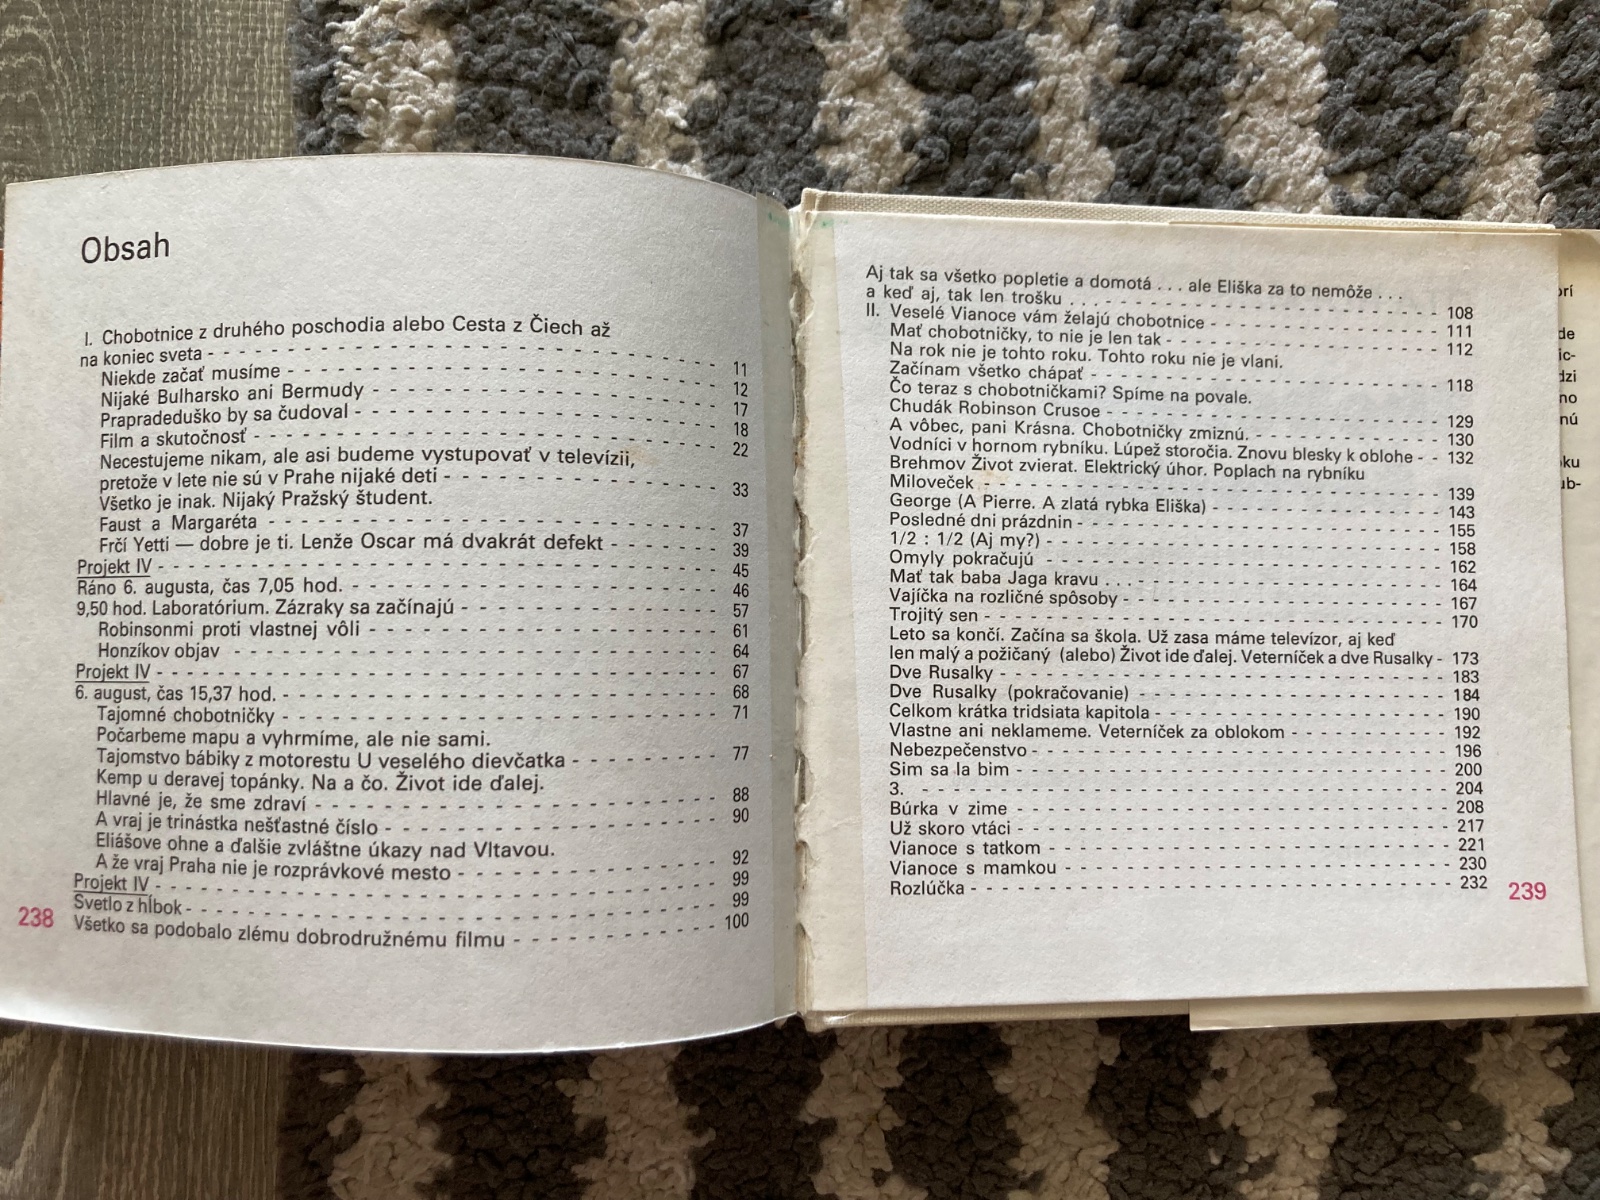 Obsah
I. Chobotnice z druhého poschodia alebo Cesta z Čiech až
na koniec sveta - - - - - - - - - - - - - - - - - - - - - 11
Niekde začať musíme - - - - - - - - - - - - - - - - - - 12
Nijaké Bulharsko ani Bermudy - - - - - - - - - - - - - - 17
Prapradeduško by sa čudoval - - - - - - - - - - - - - - 18
Film a skutočnosť - - - - - - - - - - - - - - - - - - - 22
Necestujeme nikam, ale asi budeme vystupovať v televízii,
pretože v lete nie sú v Prahe nijaké deti - - - - - - - - - - 33
Všetko je inak. Nijaký Pražský študent.
Faust a Margaréta - - - - - - - - - - - - - - - - - - - 37
Frčí Yetti — dobre je ti. Lenže Oscar má dvakrát defekt - - - - - 39
Projekt IV - - - - - - - - - - - - - - - - - - - - - - - 45
Ráno 6. augusta, čas 7,05 hod. - - - - - - - - - - - - - - 46
9,50 hod. Laboratórium. Zázraky sa začínajú - - - - - - - - - 57
Robinsonmi proti vlastnej vôli - - - - - - - - - - - - - - 61
Honzíkov objav - - - - - - - - - - - - - - - - - - - - 64
Projekt IV - - - - - - - - - - - - - - - - - - - - - - - 67
6. august, čas 15,37 hod. - - - - - - - - - - - - - - - - - 68
Tajomné chobotničky - - - - - - - - - - - - - - - - - - 71
Počarbeme mapu a vyhrmíme, ale nie sami.
Tajomstvo bábiky z motorestu U veselého dievčatka - - - - - - 77
Kemp u deravej topánky. Na a čo. Život ide ďalej.
Hlavné je, že sme zdraví - - - - - - - - - - - - - - - - - 88
A vraj je trinástka nešťastné číslo - - - - - - - - - - - - - 90
Eliášove ohne a ďalšie zvláštne úkazy nad Vltavou.
A že vraj Praha nie je rozprávkové mesto - - - - - - - - - - 92
Projekt IV - - - - - - - - - - - - - - - - - - - - - - - 99
Svetlo z hĺbok - - - - - - - - - - - - - - - - - - - - - 99
Všetko sa podobalo zlému dobrodružnému filmu - - - - - - - - 100
238
Aj tak sa všetko popletie a domotá . . . ale Eliška za to nemôže . . .
a keď aj, tak len trošku . . . - - - - - - - - - - - - - - - - - 108
II. Veselé Vianoce vám želajú chobotnice - - - - - - - - - - - 111
Mať chobotničky, to nie je len tak - - - - - - - - - - - - - 112
Na rok nie je tohto roku. Tohto roku nie je vlani.
Začínam všetko chápať - - - - - - - - - - - - - - - - - 118
Čo teraz s chobotničkami? Spíme na povale.
Chudák Robinson Crusoe - - - - - - - - - - - - - - - - 129
A vôbec, pani Krásna. Chobotničky zmiznú. - - - - - - - - - 130
Vodníci v hornom rybníku. Lúpež storočia. Znovu blesky k oblohe - - 132
Brehmov Život zvierat. Elektrický úhor. Poplach na rybníku
Miloveček - - - - - - - - - - - - - - - - - - - - - - 139
George (A Pierre. A zlatá rybka Eliška) - - - - - - - - - - - 143
Posledné dni prázdnin - - - - - - - - - - - - - - - - - 155
1/2 : 1/2 (Aj my?) - - - - - - - - - - - - - - - - - - - 158
Omyly pokračujú - - - - - - - - - - - - - - - - - - - 162
Mať tak baba Jaga kravu . . . - - - - - - - - - - - - - - - 164
Vajíčka na rozličné spôsoby - - - - - - - - - - - - - - - 167
Trojitý sen - - - - - - - - - - - - - - - - - - - - - - 170
Leto sa končí. Začína sa škola. Už zasa máme televízor, aj keď
len malý a požičaný (alebo) Život ide ďalej. Veterníček a dve Rusalky - 173
Dve Rusalky - - - - - - - - - - - - - - - - - - - - - 183
Dve Rusalky (pokračovanie) - - - - - - - - - - - - - - - 184
Celkom krátka tridsiata kapitola - - - - - - - - - - - - - - 190
Vlastne ani neklameme. Veterníček za oblokom - - - - - - - - 192
Nebezpečenstvo - - - - - - - - - - - - - - - - - - - - 196
Sim sa la bim - - - - - - - - - - - - - - - - - - - - - 200
3. - - - - - - - - - - - - - - - - - - - - - - - - - - 204
Búrka v zime - - - - - - - - - - - - - - - - - - - - - 208
Už skoro vtáci - - - - - - - - - - - - - - - - - - - - - 217
Vianoce s tatkom - - - - - - - - - - - - - - - - - - - 221
Vianoce s mamkou - - - - - - - - - - - - - - - - - - 230
Rozlúčka - - - - - - - - - - - - - - - - - - - - - - - 232
239